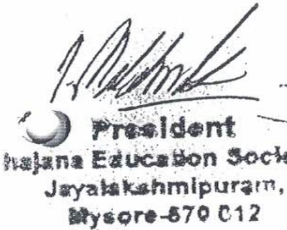 President
hajana Education Socie
Jayalakshmipuram,
Mysore-570 012